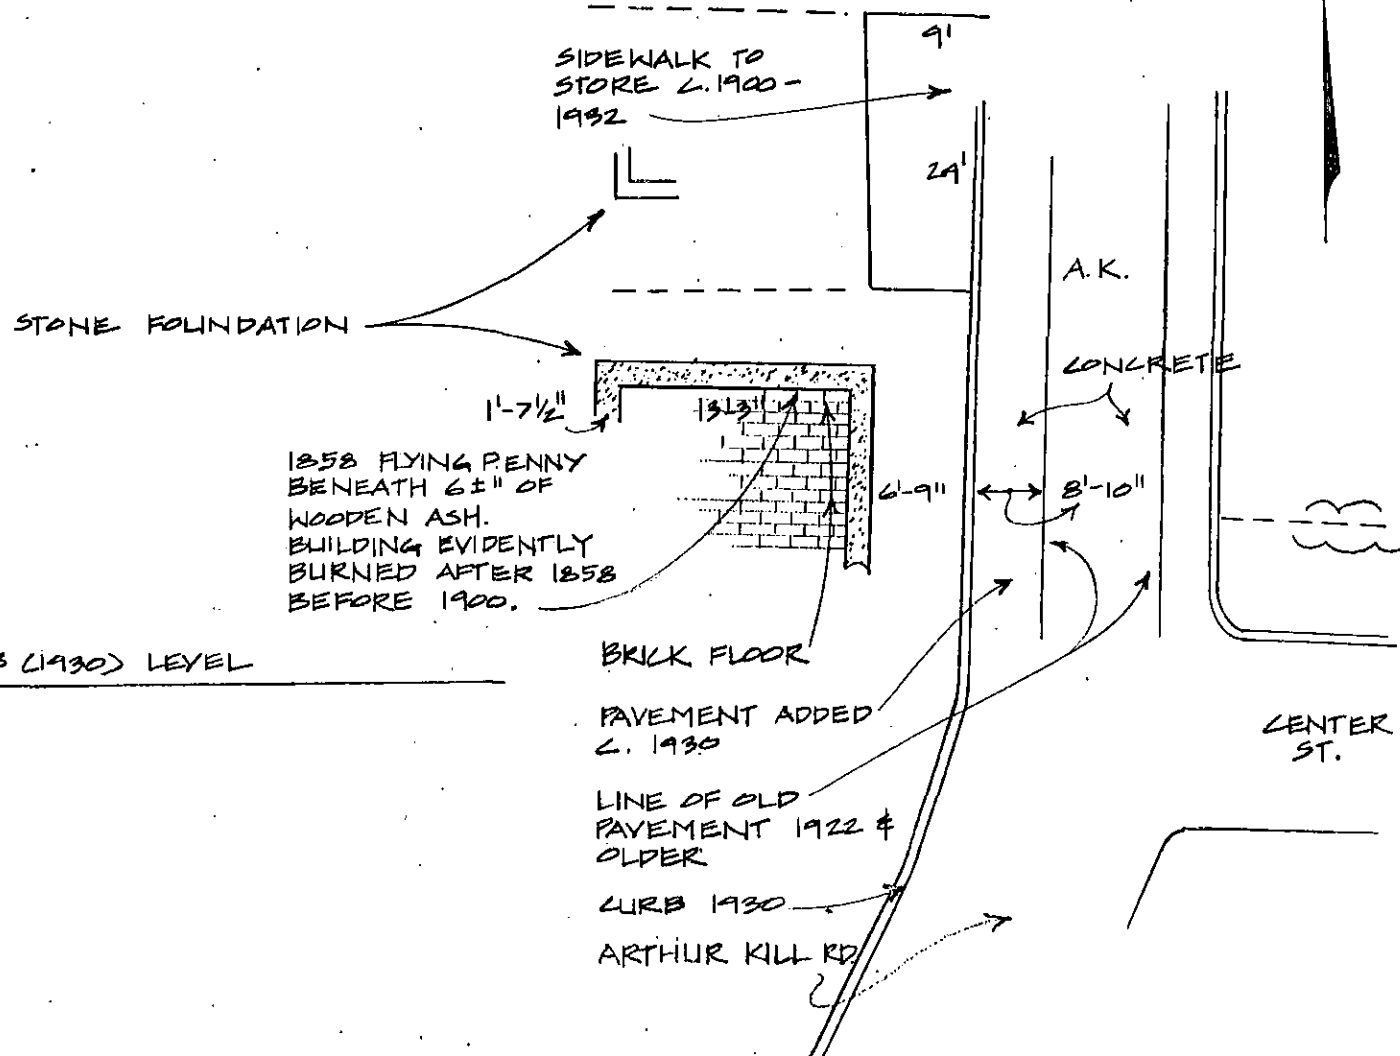 9'
SIDEWALK TO
STORE C.1900-
1932
24'
A.K.
STONE FOUNDATION
CONCRETE
1'-7½"
13'-3"
1858 FLYING PENNY
BENEATH 6±" OF
WOODEN ASH.
BUILDING EVIDENTLY
BURNED AFTER 1858
BEFORE 1900.
6'-9"
8'-10"
BRICK FLOOR
(1930) LEVEL
PAVEMENT ADDED
C. 1930
CENTER
ST.
LINE OF OLD
PAVEMENT 1922 &
OLDER
CURB 1930
ARTHUR KILL RD.